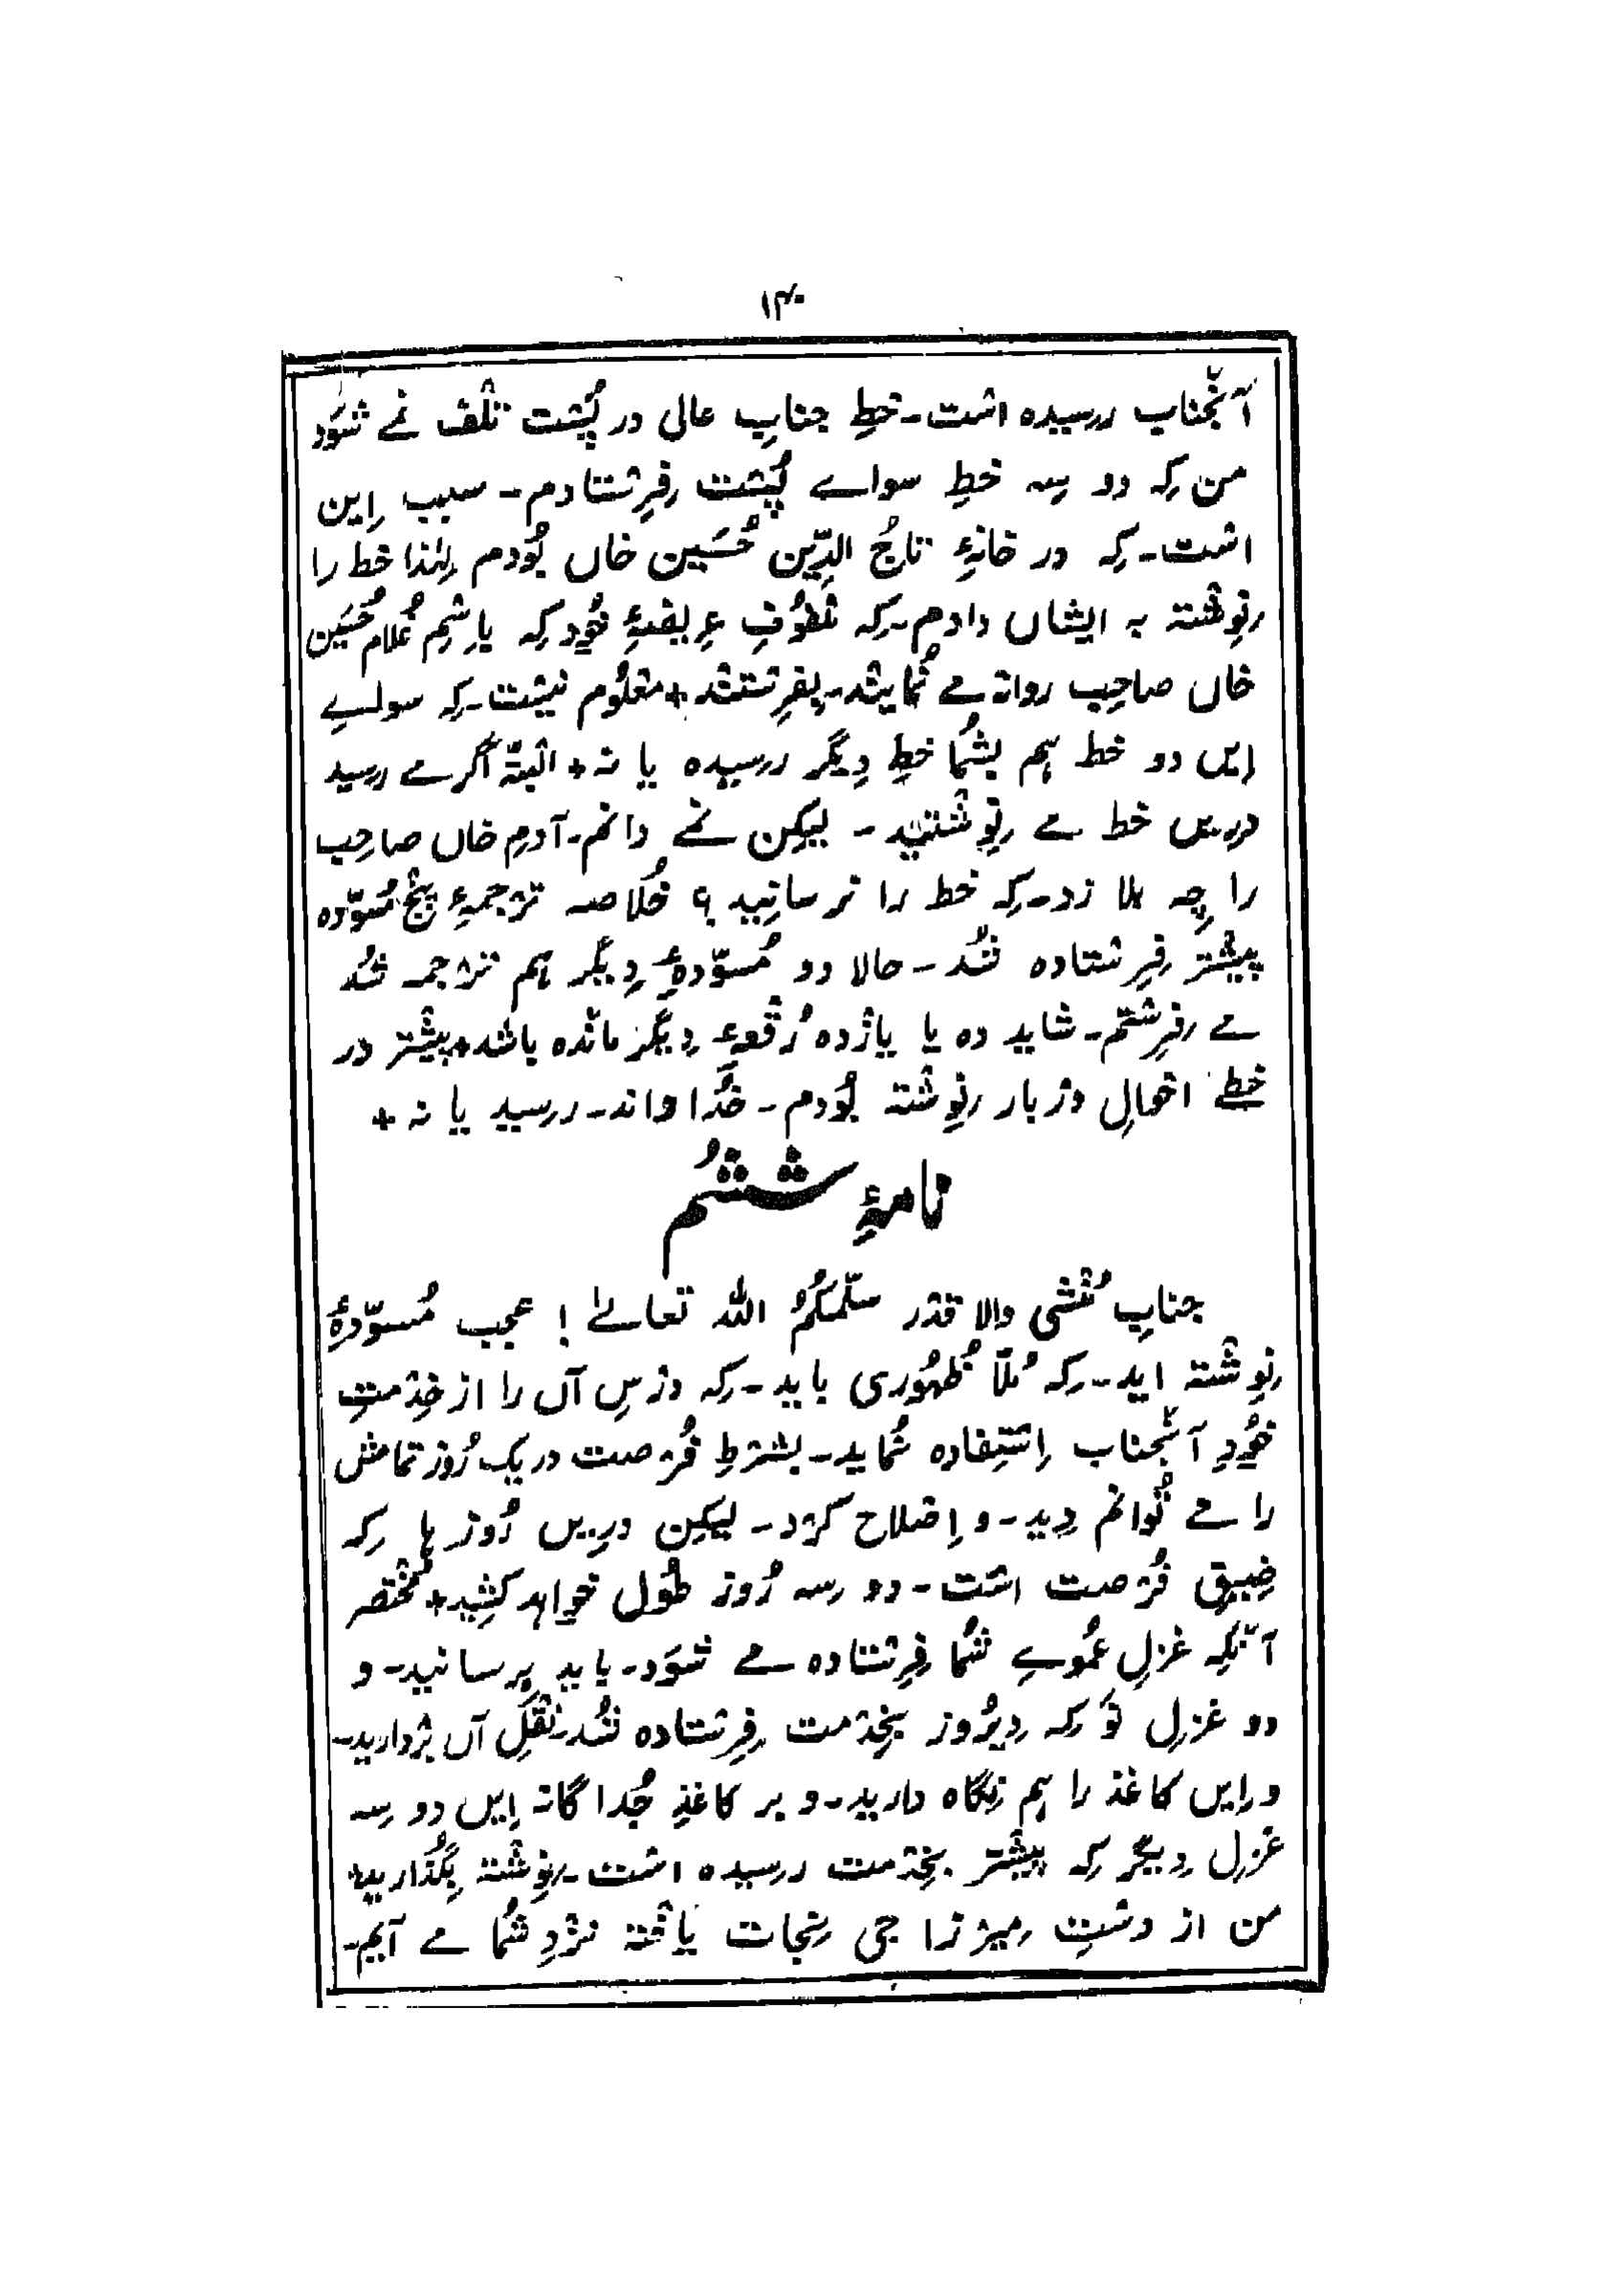 ۱۴۰
آنجناب رسیدہ است۔ خطِ جنابِ عالی در پُشت تلف نمے شَوَد
من کہ دو سہ خطِ سواے پُشت فرِستادم۔ سبب اِین
است۔ کہ در خانۂِ تاجُ الدِّین حُسَین خاں بُودم لِہٰذا خط را
نوِشتہ بہ ایشاں دادم۔ کہ ملفُوفِ عرِیضۂِ خُود کہ باِسمِ غُلام حُسَین
خاں صاحِب روانہ مے نُمایند۔ بِفرِستند + معلُوم نیست۔ کہ سواے
اِیں دو خط ہم بشُما خطِ دِیگر رسیدہ یا نہ + البتّہ اگر مے رسید
درِیں خط مے نوِشتید۔ لیکِن نمے دانم۔ آدمِ خاں صاحِب
را چِہ بلا زد۔ کہ خط را نرسانِید ؟ خُلاصہ ترجمۂِ پنج مُسوّدہ
پیشتر فرِستادہ شُد۔ حالا دو مُسوّدۂِ دِیگر ہم ترجمہ شُد
مے فرِستم۔ شاید دہ یا یازدہ رُقعۂِ دِیگر ماندہ باشد + پیشتر در
خطے احوالِ دربار نوِشتہ بُودم۔ خُدا داند۔ رسید یا نہ +
نامۂِ ششُم
جنابِ مُنشی والا قدر سلّمکُمُ اللہ تعالےٰ ! عجب مُسوّدۂ
نوِشتہ اید۔ کہ مُلّا ظُہُوری باید۔ کہ درسِ آں را از خِدمتِ
خُودِ آنجناب اِستِفادہ نُماید۔ بشرطِ فُرصت در یک رُوز تمامش
را مے تُوانم دِید۔ و اِصلاح کرد۔ لیکِن درِیں رُوز ہا کہ
ضِیقِ فُرصت است۔ دو سہ رُوز طُول خواہد کشِید + مُختصر
آنکِہ غزلِ عمُوے شُما فرِستادہ مے شَوَد۔ باید بِرسانید۔ و
دو غزلِ نَو کہ دِیرُوز بخِدمت فرِستادہ شُد۔ نقلِ آں بردارید۔
و اِیں کاغذ را ہم نِگاہ دارید۔ و بر کاغذِ جُدا گانہ اِیں دو سِہ
غزلِ دِیگر کہ پیشتر بخِدمت رسیدہ است۔ نوِشتہ بِگُذارید +
من از دستِ مِیرزا جی نِجات یافتہ نزدِ شُما مے آیم۔